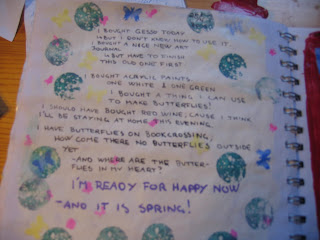 I BOUGHT GESSO TODAY
↳BUT I DON'T KNOW HOW TO USE IT
I BOUGHT A NICE NEW ART
JOURNAL
↳BUT HAVE TO FINISH
THIS OLD ONE FIRST
I BOUGHT ACRYLIC PAINTS
ONE WHITE & ONE GREEN
I BOUGHT A THING I CAN USE
TO MAKE BUTTERFLIES!
I SHOULD HAVE BOUGHT RED WINE, CAUSE I THINK
I'LL BE STAYING AT HOME THIS EVENING
I HAVE BUTTERFLIES ON BOOKCROSSING,
HOW COME THERE NO BUTTERFLIES OUTSIDE
YET
-AND WHERE ARE THE BUTTER-
FLIES IN MY HEART?
I'M READY FOR HAPPY NOW
-AND IT IS SPRING!